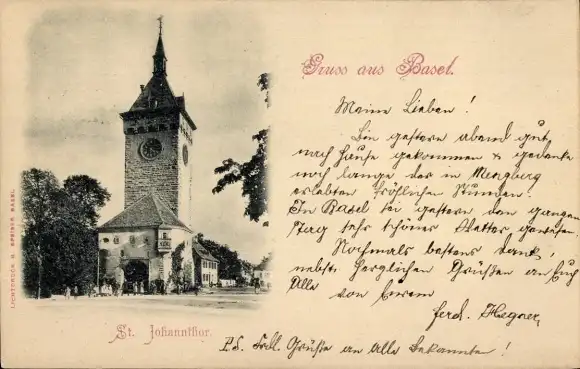 Gruss aus Basel.
Meine Lieben!
Bin gestern abend gut
nach Hause gekommen & gedenke
noch lange der in Menzberg
erlebten fröhlichen Stunden.
In Basel sei gestern den ganzen
Tag sehr schönes Wetter gewesen.
Nochmals besten Dank,
nebst herzlichen Grüßen an Euch
Alle von Eurem
Ferd. Hegner
P.S. Frdl. Grüße an Alle Bekannten!
St. Johannthor.
LICHTDRUCK H. BASEL